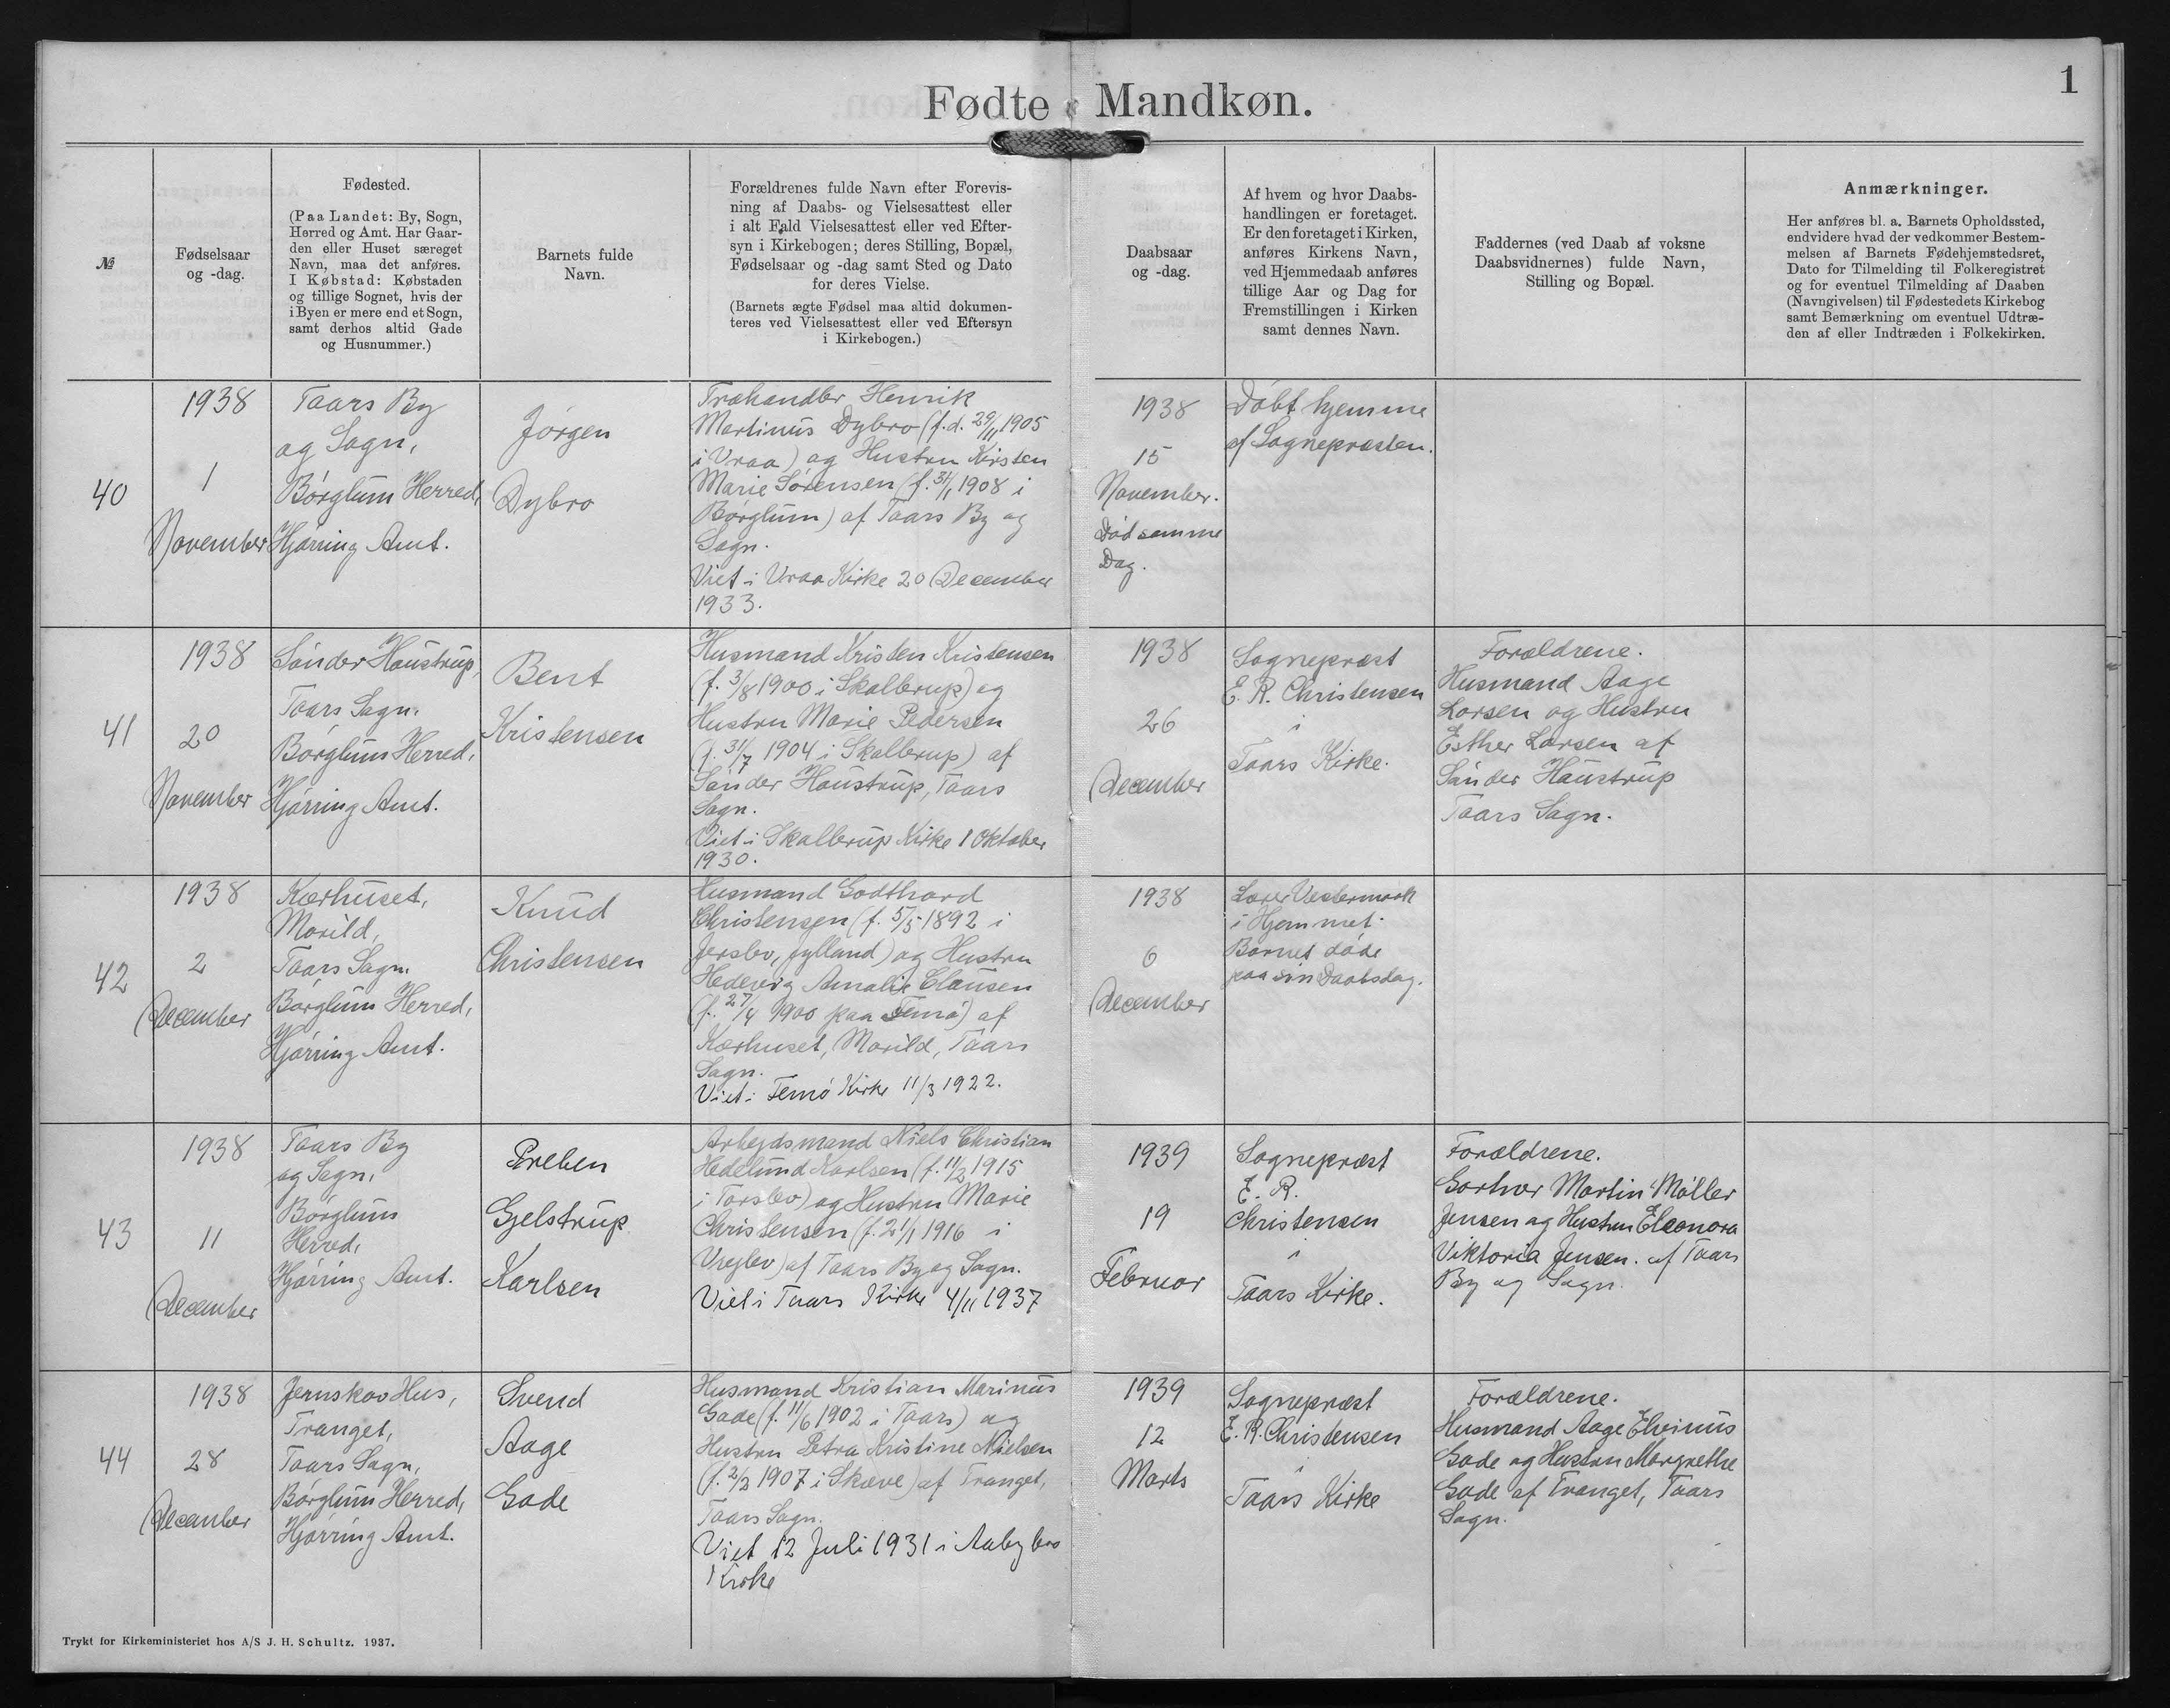 1
Fødte Mandkøn.
№
Fødselsaar
og -dag.
Fødested.
(Paa Landet: By, Sogn,
Herred og Amt. Har Gaar-
den eller Huset særeget
Navn, maa det anføres.
I Købstad: Købstaden
og tillige Sognet, hvis der
i Byen er mere end et Sogn,
samt derhos altid Gade
og Husnummer.)
Barnets fulde
Navn.
Forældrenes fulde Navn efter Forevis-
ning af Daabs- og Vielsesattest eller
i alt Fald Vielsesattest eller ved Efter-
syn i Kirkebogen; deres Stilling, Bopæl,
Fødselsaar og -dag samt Sted og Dato
for deres Vielse.
(Barnets ægte Fødsel maa altid dokumen-
teres ved Vielsesattest eller ved Eftersyn
i Kirkebogen.)
Daabsaar
og -dag.
Af hvem og hvor Daabs-
handlingen er foretaget.
Er den foretaget i Kirken,
anføres Kirkens Navn,
ved Hjemmedaab anføres
tillige Aar og Dag for
Fremstillingen i Kirken
samt dennes Navn.
Faddernes (ved Daab af voksne
Daabsvidnernes) fulde Navn,
Stilling og Bopæl.
Anmærkninger.
Her anføres bl. a. Barnets Opholdssted,
endvidere hvad der vedkommer Bestem-
melsen af Barnets Fødehjemstedsret,
Dato for Tilmelding til Folkeregistret
og for eventuel Tilmelding af Daaben
(Navngivelsen) til Fødestedets Kirkebog
samt Bemærkning om eventuel Udtræ-
den af eller Indtræden i Folkekirken.
40
1938
1
November
Taars By
og Sogn,
Børglum Herred,
Hjørring Amt.
Jørgen
Dybro
Træhandler Henrik
Martinus Dybro (f.d. 29/11 1905
i Vraa) og Hustru Kirsten
Marie Sørensen (f. 31/1 1908 i
Børglum) af Taars By og
Sogn.
Viet i Vraa Kirke 20 December
1933.
1938
15
November.
Død samme
Dag.
Døbt hjemme
af Sognepræsten.
41
1938
20
November
Sønder Haustrup,
Taars Sogn.
Børglum Herred,
Hjørring Amt.
Bent
Kristensen
Husmand Kristen Kristensen
(f. 3/8 1900 i Skallerup) og
Hustru Marie Pedersen
(f. 31/7 1904 i Skallerup) af
Sønder Haustrup, Taars
Sogn.
Viet i Skallerup Kirke 1 Oktober
1930.
1938
26
December
Sognepræst
E. R. Christensen
i
Taars Kirke.
Forældrene.
Husmand Aage
Larsen og Hustru
Esther Larsen af
Sønder Haustrup
Taars Sogn.
42
1938
2
December
Kærhuset,
Morild,
Taars Sogn.
Børglum Herred,
Hjørring Amt.
Knud
Christensen
Husmand Godthard
Christensen (f. 5/5 1892 i
Jerslev, Jylland) og Hustru
Hedevig Amalie Clausen
(f. 27/4 1900 paa Femø) af
Kærhuset, Morild, Taars
Sogn.
Viet i Femø Kirke 11/3 1922.
1938
6
December
Lærer Vestermark
i Hjemmet.
Barnet døde
paa sin Daabsdag.
43
1938
11
December
Taars By
og Sogn,
Børglum
Herred,
Hjørring Amt.
Preben
Gjelstrup
Karlsen
Arbejdsmand Niels Christian
Hedelund Karlsen (f. 11/2 1915
i Torslev) og Hustru Marie
Christensen (f. 21/1 1916 i
Vrejlev) af Taars By og Sogn.
Viet i Taars Kirke 4/11 1937
1939
19
Februar
Sognepræst
E. R.
Christensen
i
Taars Kirke.
Forældrene.
Gartner Martin Møller
Jensen og Hustru Eleonora
Viktoria Jensen. af Taars
By og Sogn.
44
1938
28
December
Jernskov Hus,
Tranget,
Taars Sogn,
Børglum Herred,
Hjørring Amt.
Svend
Aage
Gade
Husmand Kristian Marinus
Gade (f. 11/6 1902 i Taars) og
Hustru Petra Kristine Nielsen
(f. 2/2 1907 i Skæve) af Tranget,
Taars Sogn.
Viet 12 Juli 1931 i Aabybro
Kirke
1939
12
Marts
Sognepræst
E. R. Christensen
i
Taars Kirke
Forældrene.
Husmand Aage Elvinus
Gade og Hustru Margrethe
Gade af Tranget, Taars
Sogn.
Trykt for Kirkeministeriet hos A/S J. H. Schultz. 1937.